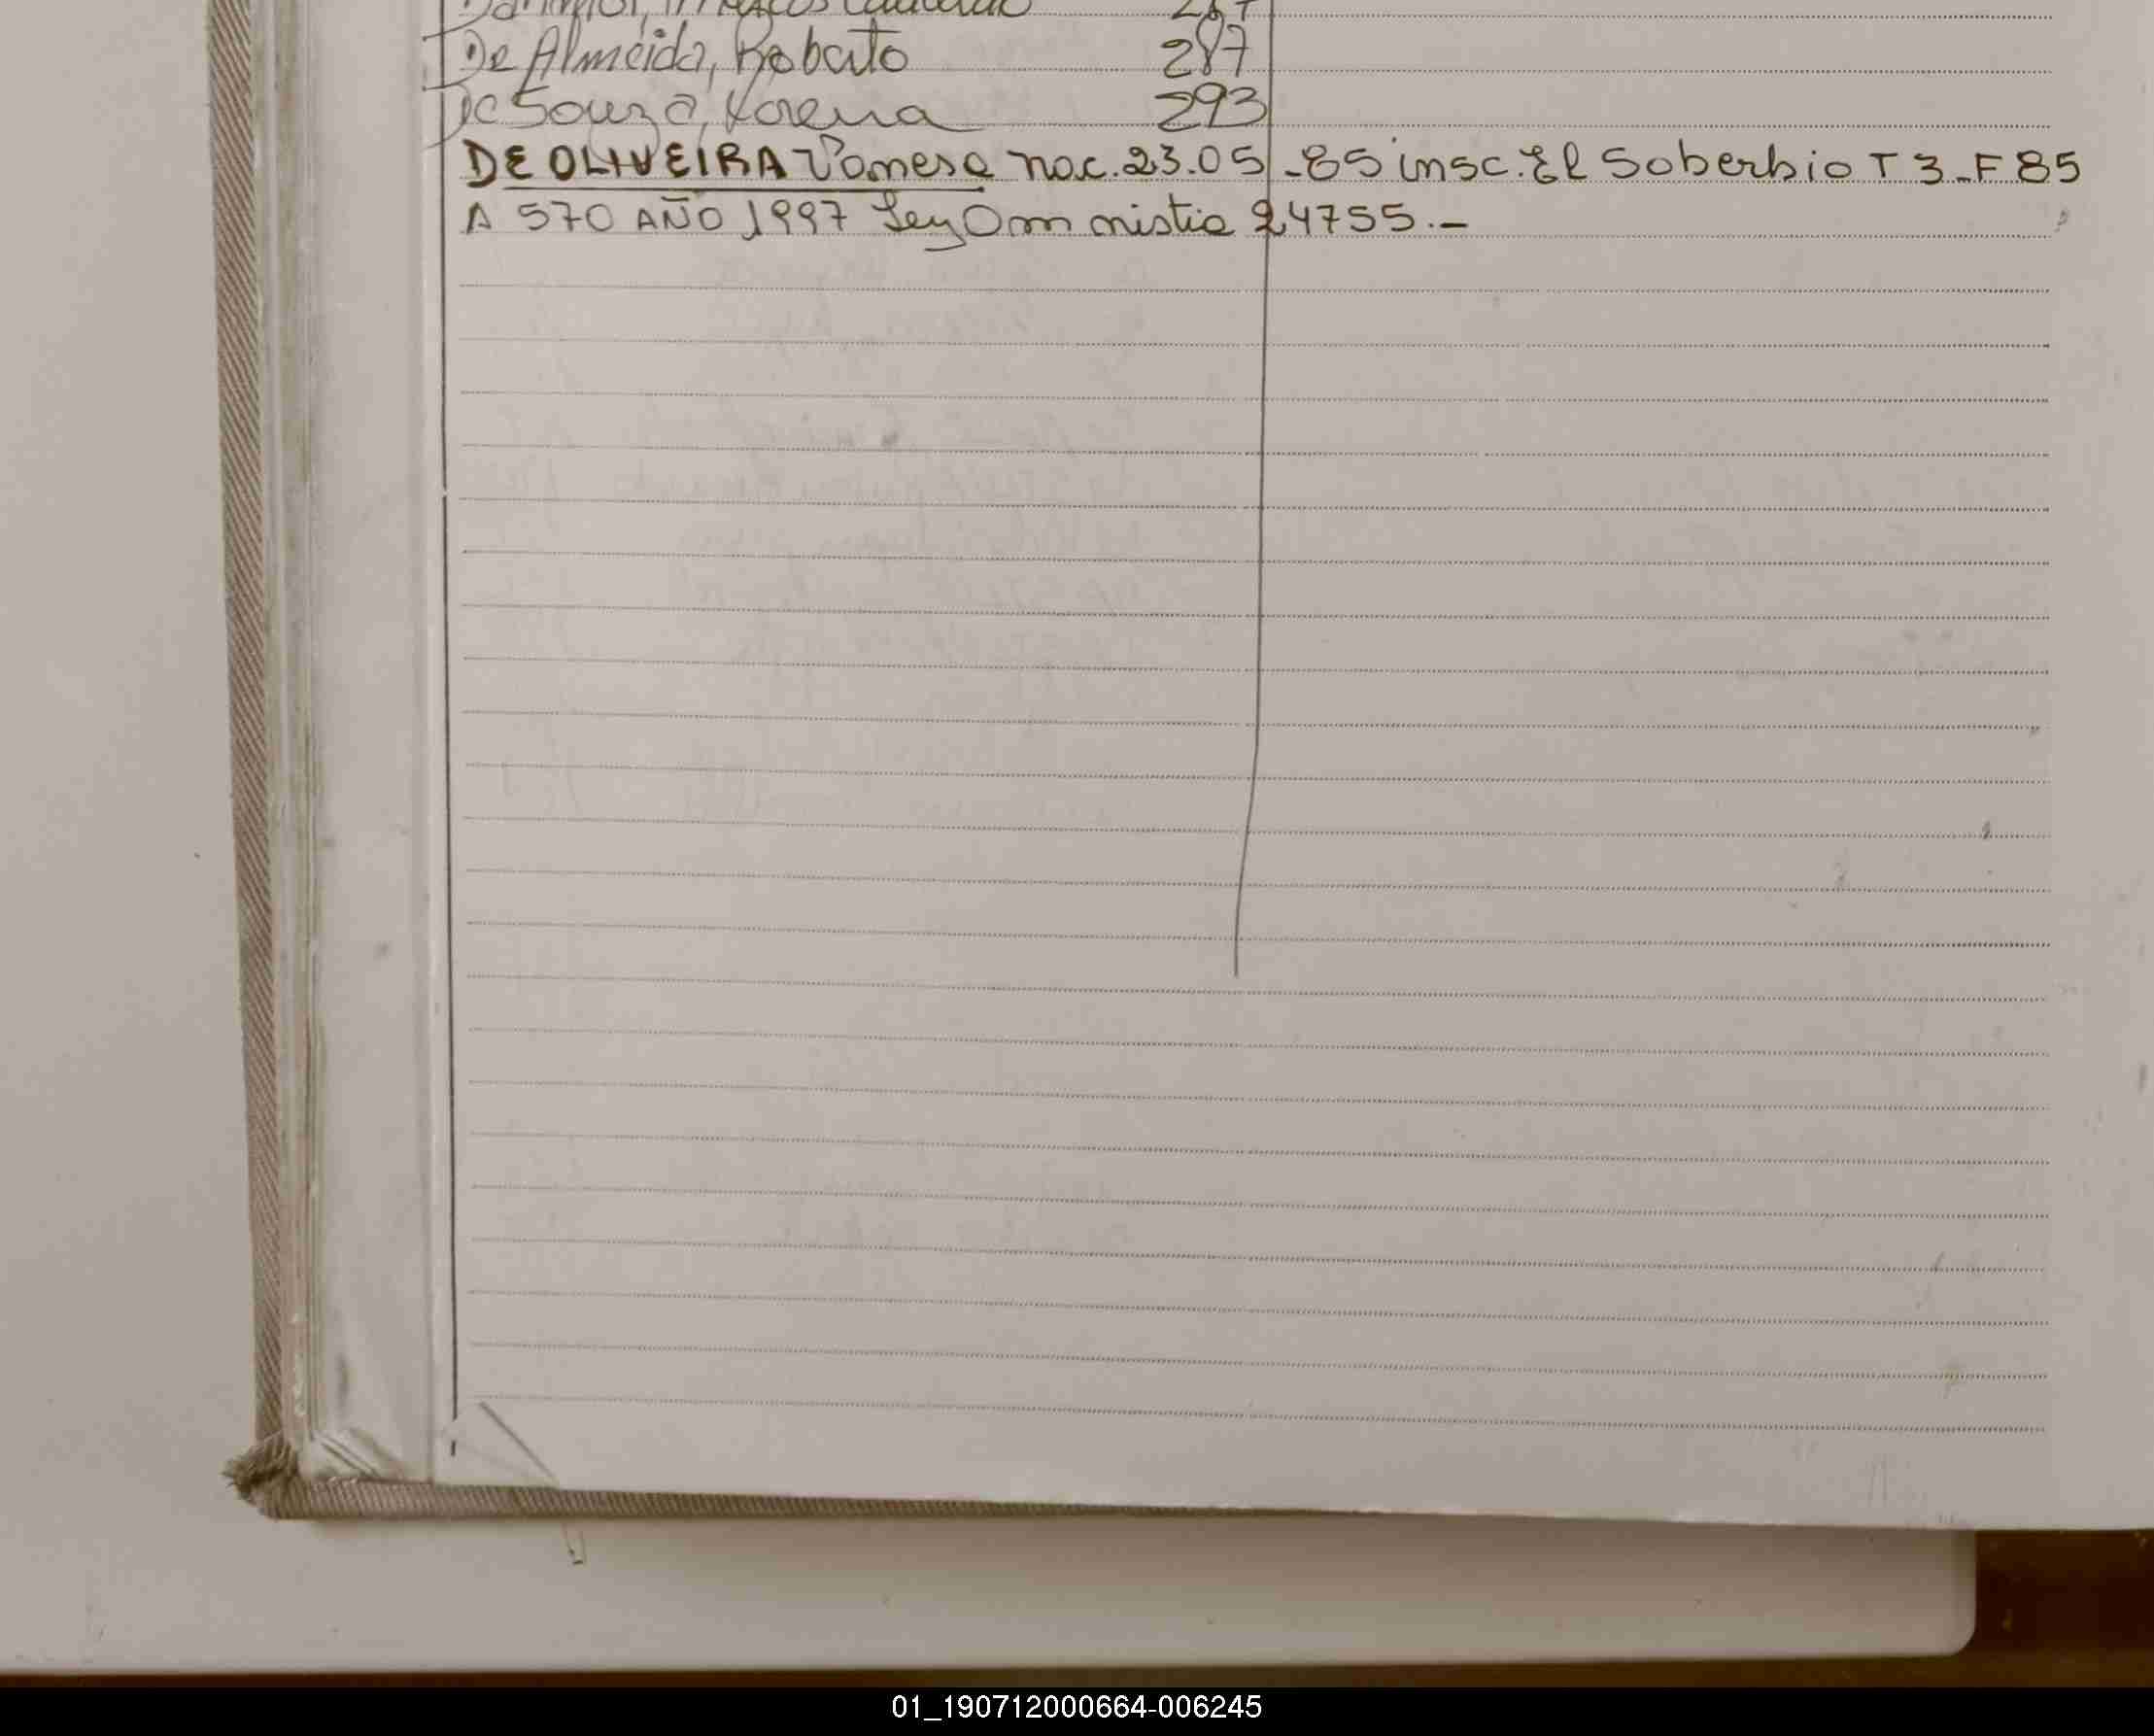 De Almeida, Roberto 287
De Souza, Lorena 293
DE OLIVEIRA Vanesa nac. 23.05-85 insc. El Soberbio T 3-F 85
A 570 AÑO 1997 Ley Amnistia 24755.-
01_190712000664-006245